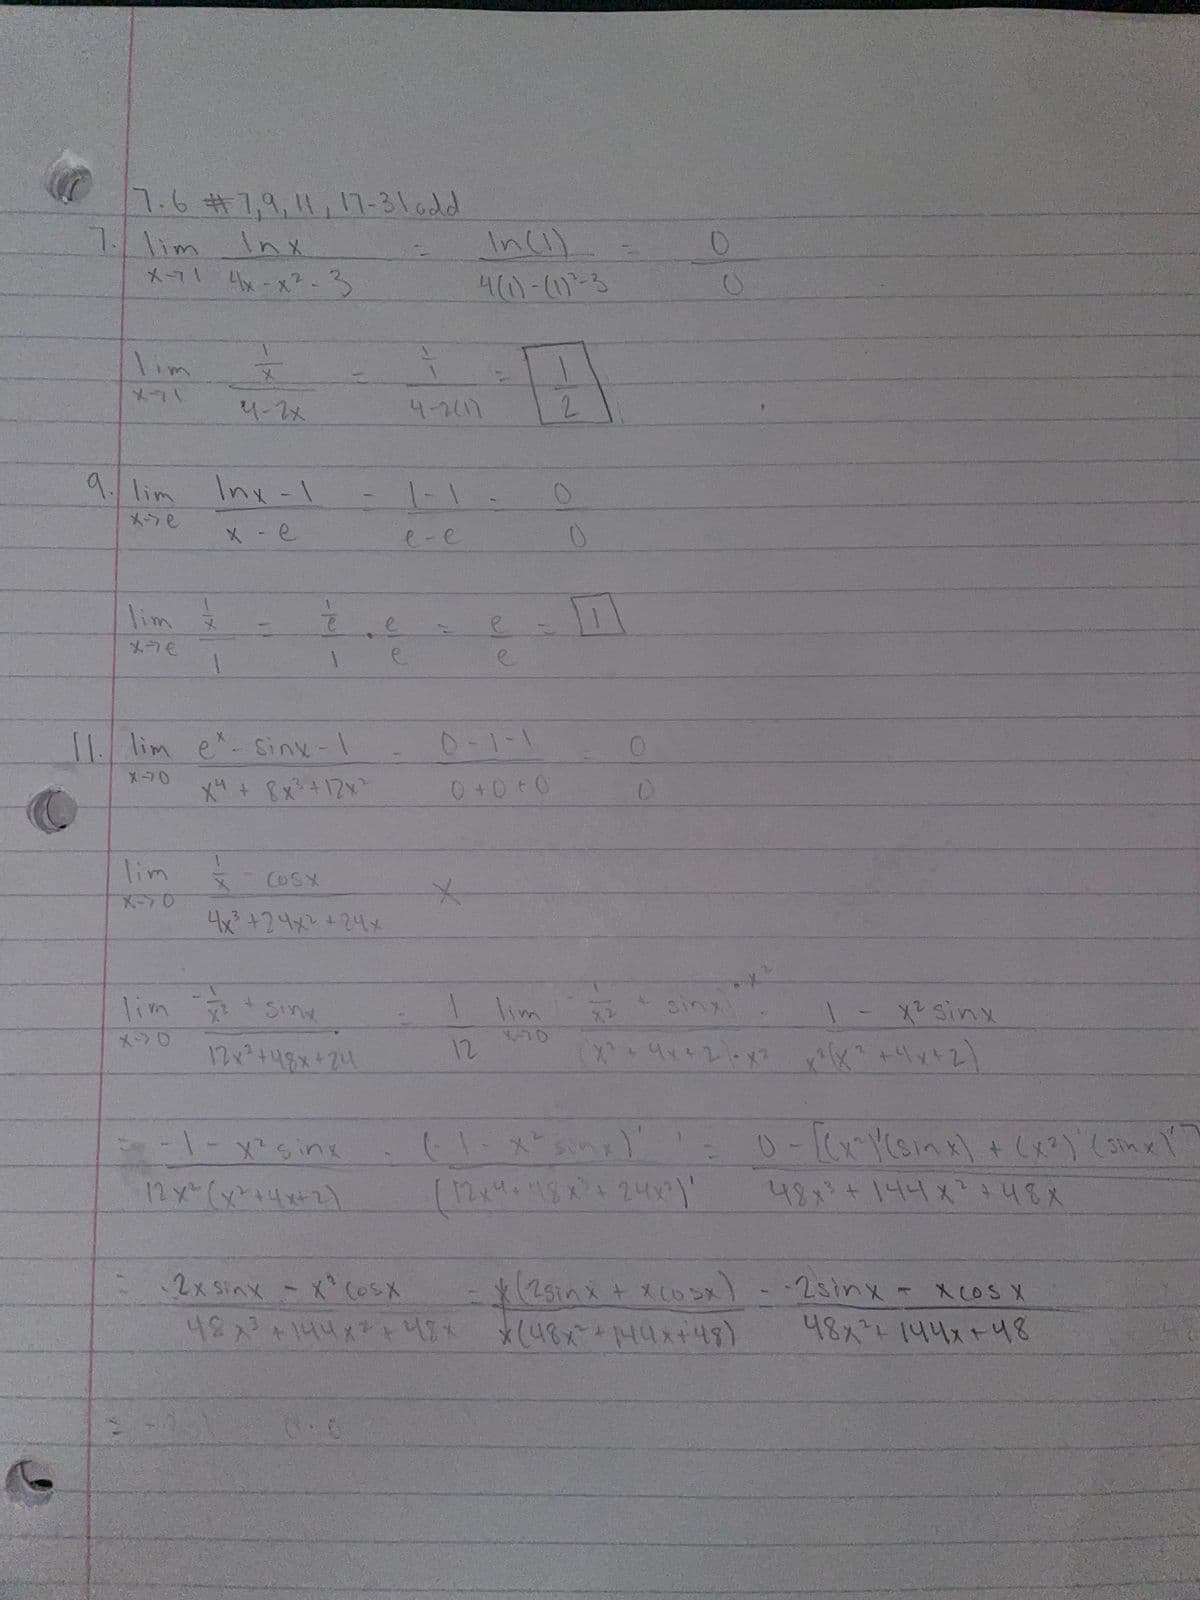 7.6 #7,9,11,17-31 odd
7. lim x→1 ln x / (4x - x² - 3) = ln(1) / (4(1) - (1)² - 3) = 0/0
lim x→1 (1/x) / (4 - 2x) = (1/1) / (4 - 2(1)) = 1/2
9. lim x→e (ln x - 1) / (x - e) = (1 - 1) / (e - e) = 0/0
lim x→e (1/x) / 1 = (1/e) / 1 · e/e = e/e = 1
11. lim x→0 (eˣ - sinx - 1) / (x⁴ + 8x³ + 12x²) = (0 - 1 - 1) / (0 + 0 + 0) = 0/0
lim x→0 (1/x - cosx) / (4x³ + 24x² + 24x) x
lim x→0 (-1/x² + sinx) / (12x² + 48x + 24) = 1/12 lim x→0 (-1/x² + sinx) · x² / (x² + 4x + 2) · x² = 1 - x² sinx / x²(x² + 4x + 2)
= -1 - x² sinx / 12x²(x² + 4x + 2) = (-1 - x² sinx)' / (12x⁴ + 48x³ + 24x²)' = 0 - [(x²)'(sinx) + (x²)(sinx)'] / 48x³ + 144x² + 48x
= -2x sinx - x² cosx / 48x³ + 144x² + 48x = x(2sinx + xcosx) / x(48x² + 144x + 48) = -2sinx - xcosx / 48x² + 144x + 48